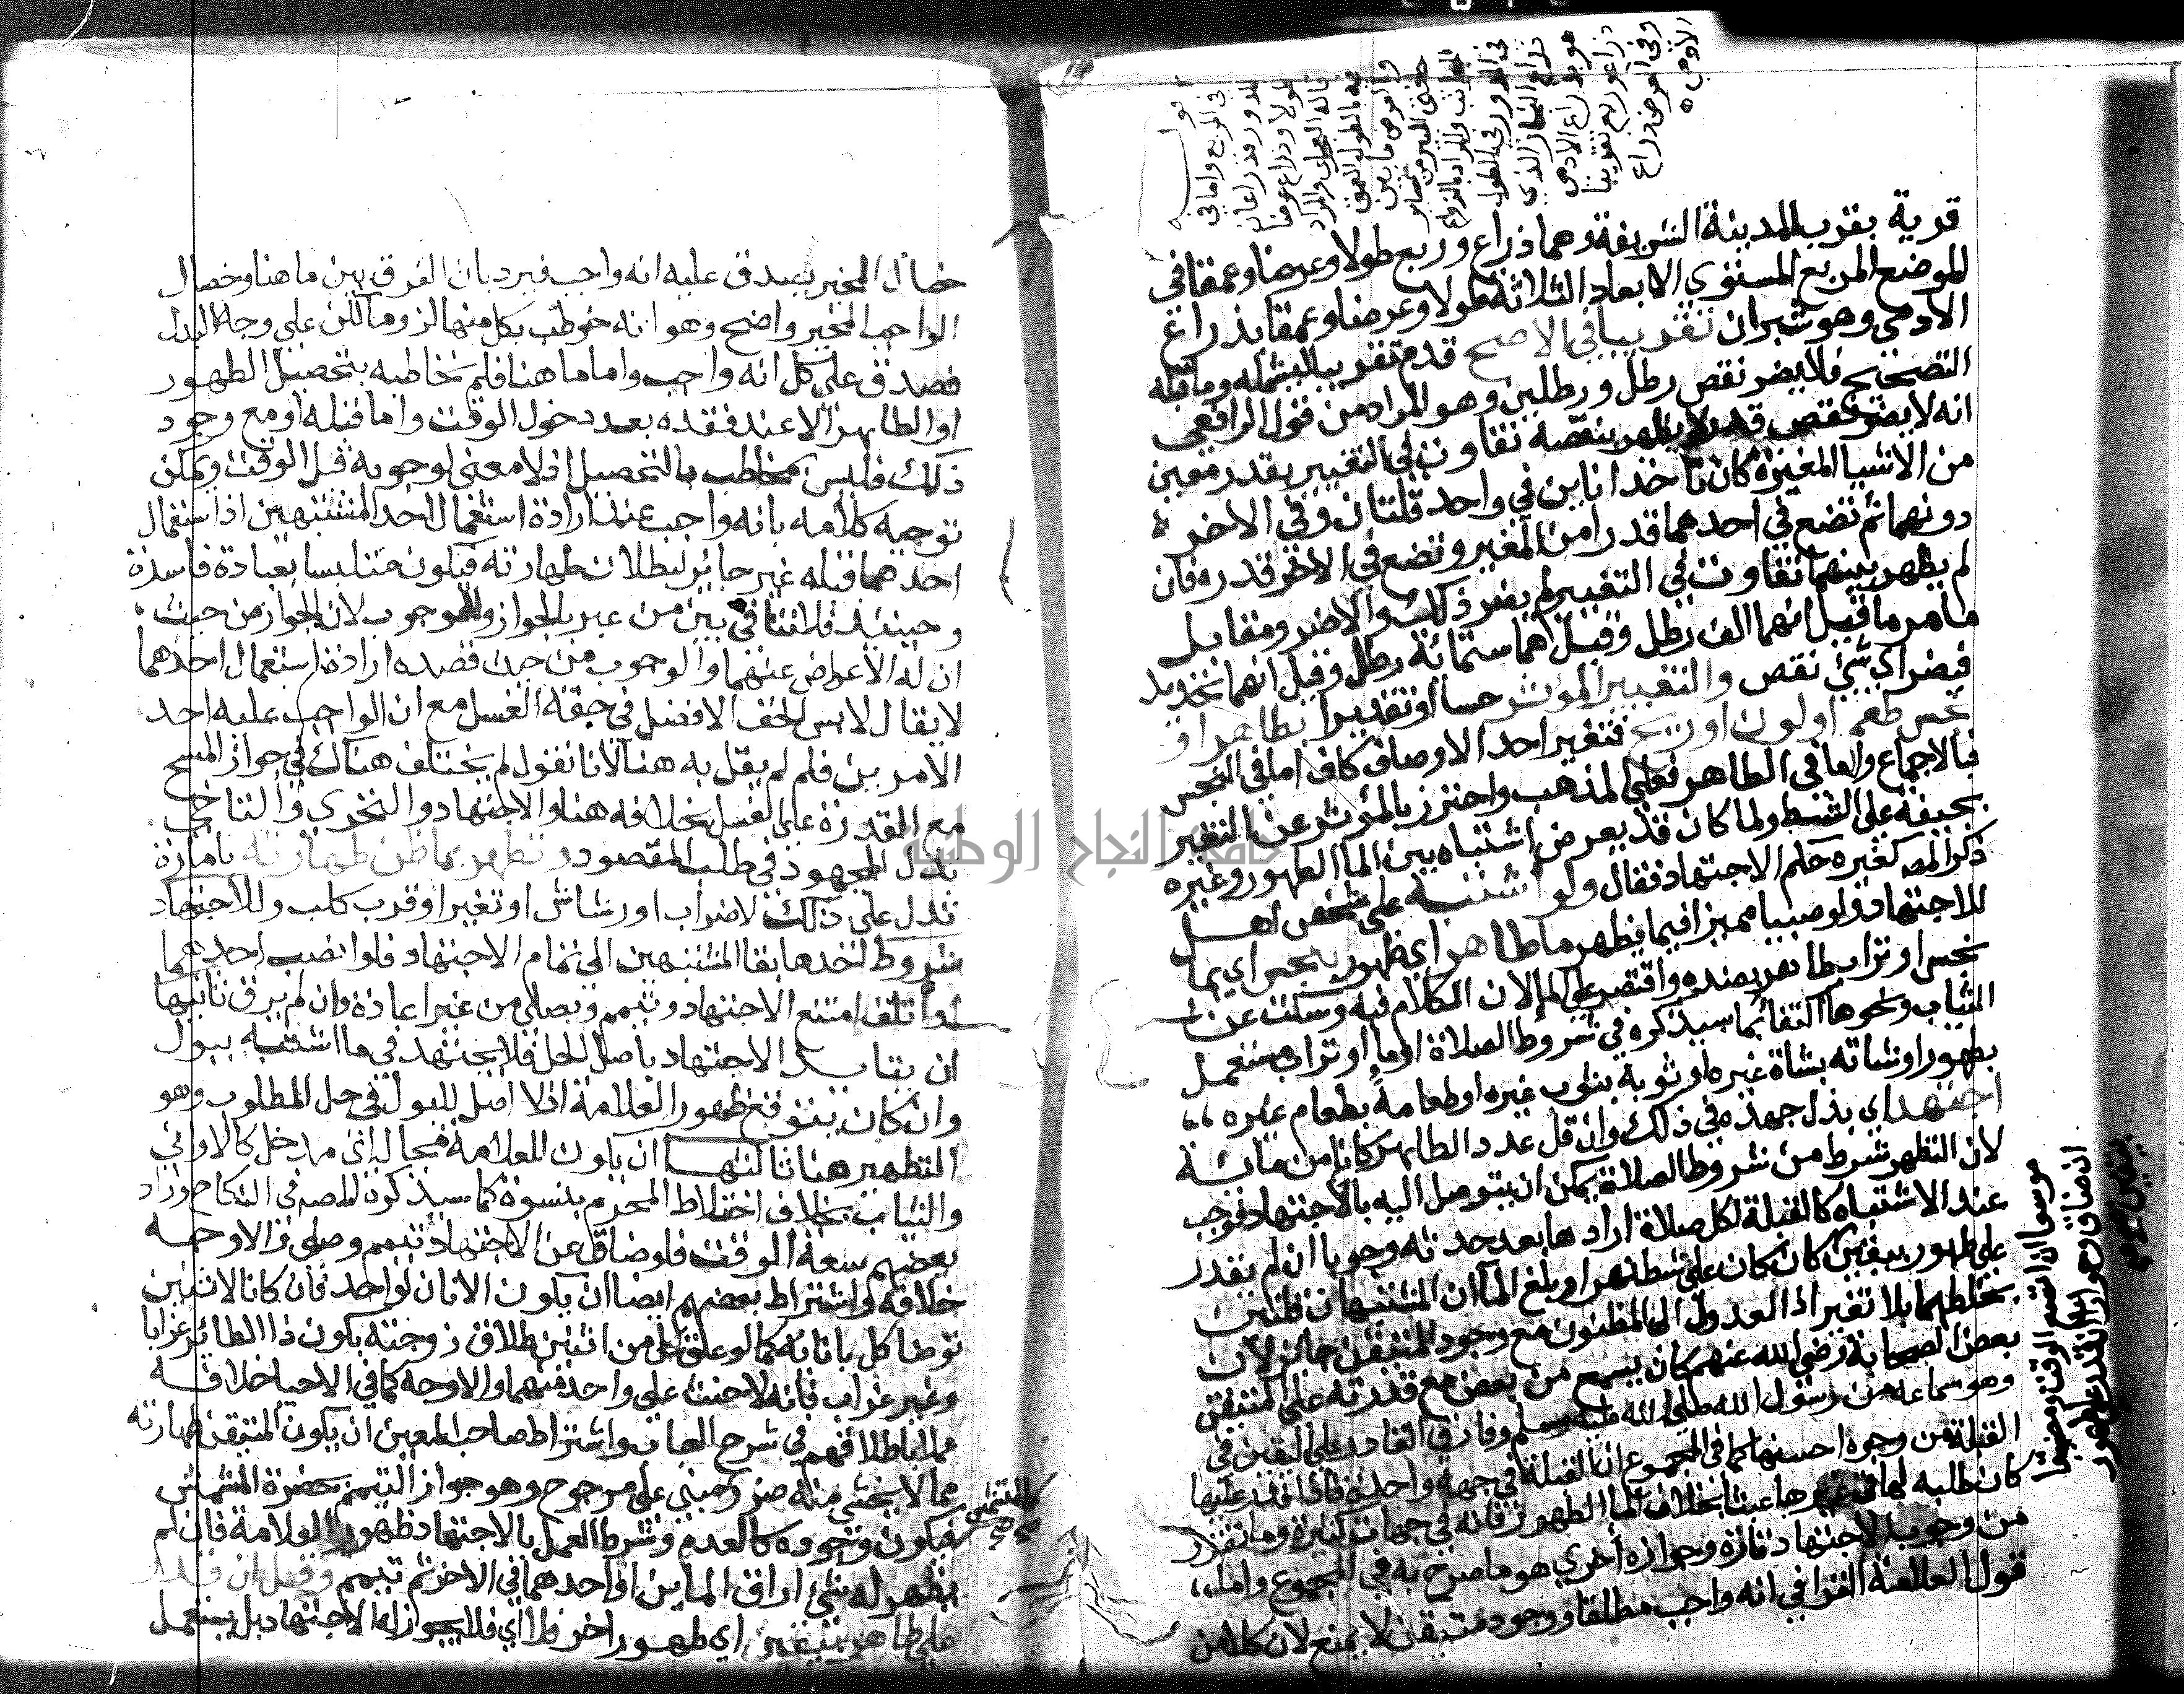 قرية بقرب المدينة الشريفة وهما ذراع وربع طولا وعرضا وعمقا في
الموضع المربع المستوي الابعاد الثلاثة طولا وعرضا وعمقا بذراع
الادمي وهو شبران تقريبا في الاصح قدم تقريبا ليشمله وما قبله
التصحيح فلا يضر نقص رطل ورطلين وهو المراد من قول الرافعي
انه لا يضر نقص قدر لا يظهر بنقصه تفاوت في التغيير بقدر معين
من الاشيا المغيرة كان تاخذ اناين في واحد قلتان وفي الاخر
دونهما ثم تضع في احدهما قدرا من المغير وتضع في الاخر قدره فان
لم يظهر بينهما تفاوت في التغيير لم يضر ذلك والا ضر ومقابل
ما مر ما قيل انهما الف رطل وقيل هما ستمائة رطل وقيل انهما تحديد
فيضر اي شي نقص والتغيير الموثر حسا او تقديرا بطاهر او
نجس طعم او لون او ريح فتغير احد الاوصاف كاف اما في النجس
فبالاجماع واما في الطاهر فعلى المذهب واحترز بالموثر عن التغير
بجيفة على الشط ولما كان قد يعرض اشتباه بين الما الطهور وغيره
ذكر المص كغيره حكم الاجتهاد فقال ولو اشتبه على شخص اهل
للاجتهاد ولو صبيا مميزا فيما يظهر ما طاهر اي طهور بنجس اي بما
نجس او تراب طاهر بضده واقتصر على الما لان الكلام فيه وسكت عن
الثياب ونحوها اكتفا بما سيذكره في شروط الصلاة او ما او تراب مستعمل
بطهور او شاته بشاة غيره او ثوبه بثوب غيره او طعامه بطعام غيره
اجتهد اي بذل جهده في ذلك وان قل عدد الطاهر كانا من مائة
لان التطهر شرط من شروط الصلاة يمكن ان يتوصل اليه بالاجتهاد فوجب
عند الاشتباه كالقبلة لكل صلاة ارادها بعد حدثه وجوبا ان لم يقدر
على طهور بيقين كان كان على شط نهر او بلغ الماان المشتبهان قلتين
بخلطهما بلا تغير اذ العدول الى المظنون مع وجود المتيقن جائز لان
بعض الصحابة رضي الله عنهم كان يسمع من بعض مع قدرته على المتيقن
وهو سماعه من رسول الله صلى الله عليه وسلم وفارق القادر على اليقين في
القبلة من وجوه احسنها كما في المجموع ان القبلة في جهة واحدة فاذا قدر عليها
كان طلبه لها في غيرها عبثا بخلاف الما الطهور فانه في جهات كثيرة وما تقرر
من وجوب الاجتهاد تارة وجوازه اخرى هو ما صرح به في المجموع واما
قول العلامة القرافي انه واجب مطلقا ووجود متيقن لا يمنع لان كلا من
موسعا ان اتسع الوقت ومضيقا
ان ضاق وجوازا ان قدر على طهور
بيقين
خصال المخير يصدق عليه انه واجب فيرد بان الفرق بين ما هنا وخصال
الواجب المخير واضح وهو انه خوطب بكل منها لزوما لكن على وجه البدل
فصدق على كل انه واجب واما ما هنا فلم نخاطبه بتحصيل الطهور
او الطاهر الا عند فقده بعد دخول الوقت واما قبله او مع وجود
ذلك فليس بمخاطب بالتحصيل اذ لا معنى لوجوبه قبل الوقت ويمكن
توجيه كلامه بانه واجب عند ارادة استعمال احد المشتبهين اذ استعمال
احدهما قبله غير جائز لبطلان طهارته فيكون متلبسا بعبادة فاسدة
وحينئذ فلا تنافي بين من عبر بالجواز والوجوب لان الجواز من حيث
ان له الاعراض عنهما والوجوب من حيث قصده ارادة استعمال احدهما
لا يقال لابس الخف الافضل في حقه الغسل مع ان الواجب عليه احد
الامرين فلم لم يقل به هنا لانا نقول لم يختلف هناك في جواز المسح
مع المقدرة على الغسل بخلافه هنا والاجتهاد والتحري والتاخي
بذل المجهود في طلب المقصود وتطهر بما ظن طهارته بامارة
تدل على ذلك لاضراب او رشاش او تغير او قرب كلب وللاجتهاد
شروط احدها بقا المشتبهين الى تمام الاجتهاد فلو انصب احدهما
او تلف امتنع الاجتهاد وتيمم ويصلي من غير اعادة وان لم يرق ثانيها
ان يتايد الاجتهاد باصل الحل فلا يجتهد في ما اشتبه ببول
وان كان يتوقع ظهور العلامة اذ لا اصل للبول في حل المطلوب وهو
التطهير هنا ثالثها ان يكون للعلامة مجال اي مدخل كالاواني
والثياب بخلاف اختلاط المحرم بنسوة كما سيذكره المص في النكاح وزاد
بعضهم سعة الوقت فلو ضاق عن الاجتهاد تيمم وصلى والاوجه
خلافه واشتراط بعضهم ايضا ان يكون الانان لواحد فان كانا لاثنين
توضا كل باناته كما لو علق كل من اثنين طلاق زوجته بكون ذا الطائر غرابا
وغير غراب فانه لا حنث على واحد منهما والاوجه كما في الاحيا خلافه
عملا باطلاقهم في شرح العباب واشتراط صاحب المعين ان يكون المتيقن طهارته
مما لا يخشى منه ضرر مبني على مرجوح وهو جواز التيمم بحضرة المشمش
فيكون وجوده كالعدم وشرط العمل بالاجتهاد ظهور العلامة فان لم
يظهر له شي اراق الماين او احدهما في الاخر ثم تيمم وقيل ان قدر
على طاهر بيقين اي طهور اخر فلا اي فلا يجوز له الاجتهاد بل يستعمل
كالمشمس
صح
جامعة النجاح الوطنية